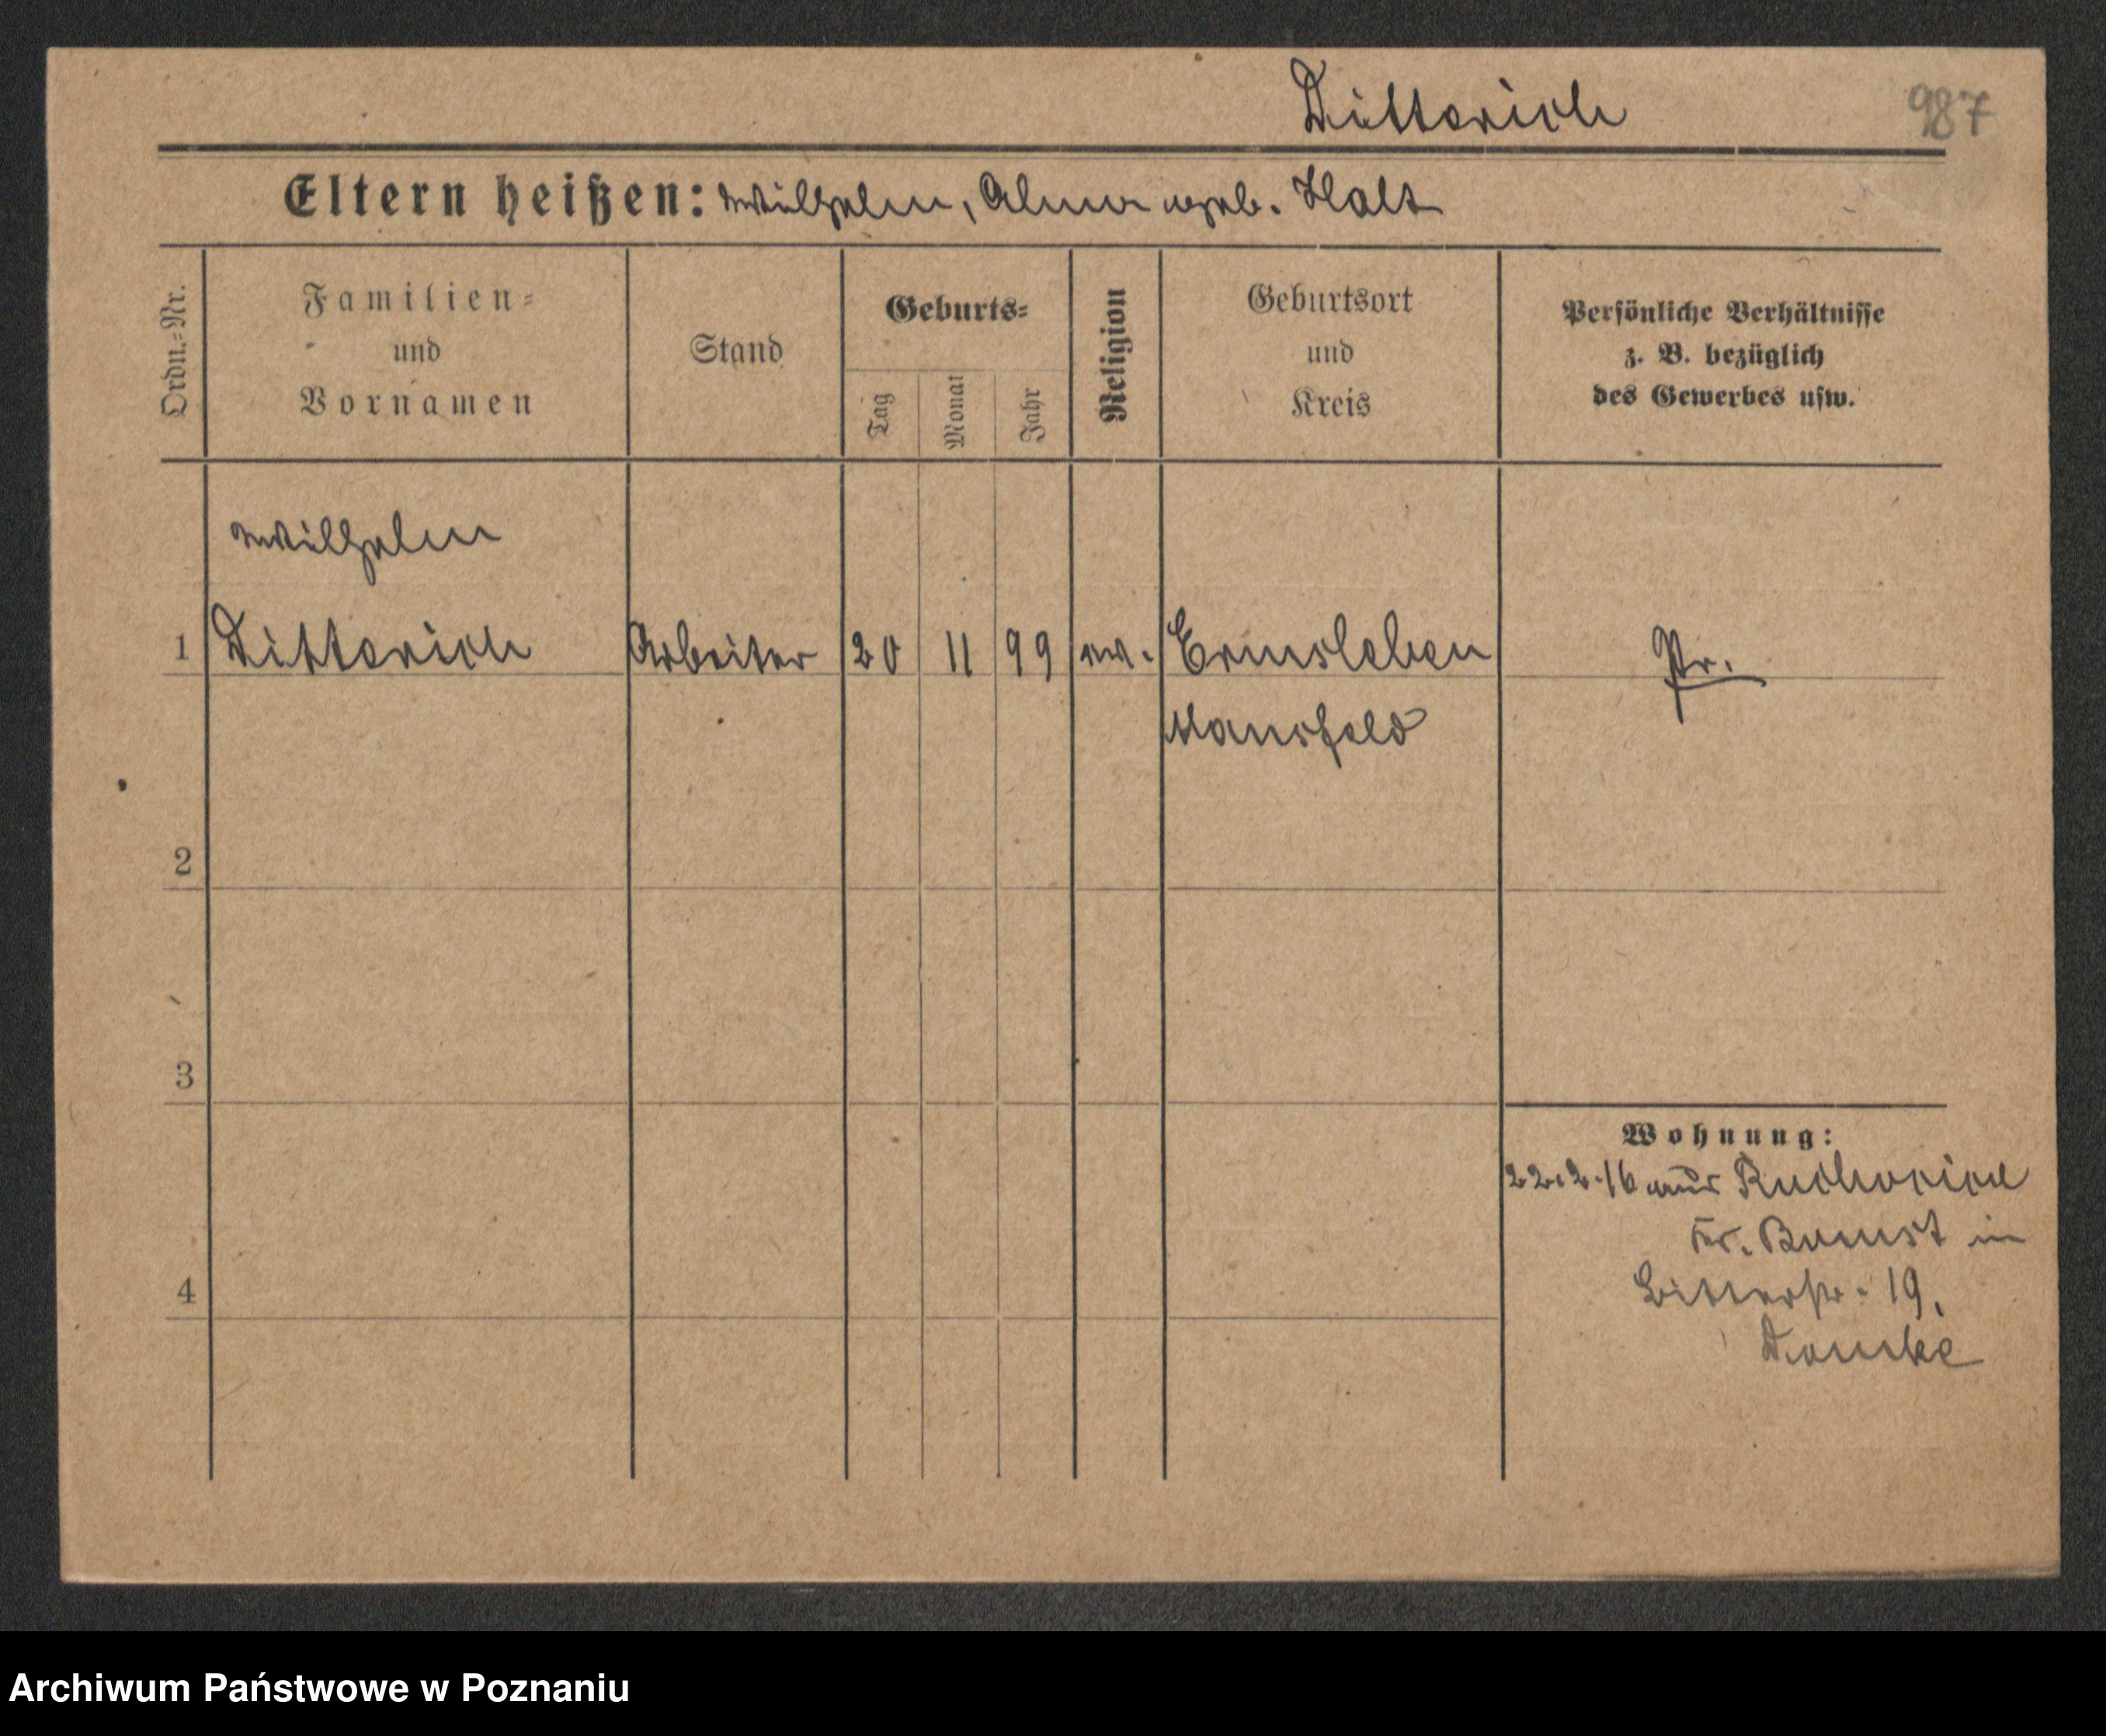 Ditterich
987
Eltern heißen: Wilhelm, Alma geb. Halt
Ordn.-Nr.
Familien-
und
Vornamen
Stand
Geburts-
Tag
Monat
Jahr
Religion
Geburtsort
und
Kreis
Persönliche Verhältnisse
z. B. bezüglich
des Gewerbes usw.
Wilhelm
1 Dittterich Arbeiter 20 11 99 ev. Ermsleben Pr.
Mansfeld
2
3
Wohnung:
22.2.16 aus
Kr. Bomst in
4 Bitterstr. 19.
Domke
Archiwum Państwowe w Poznaniu